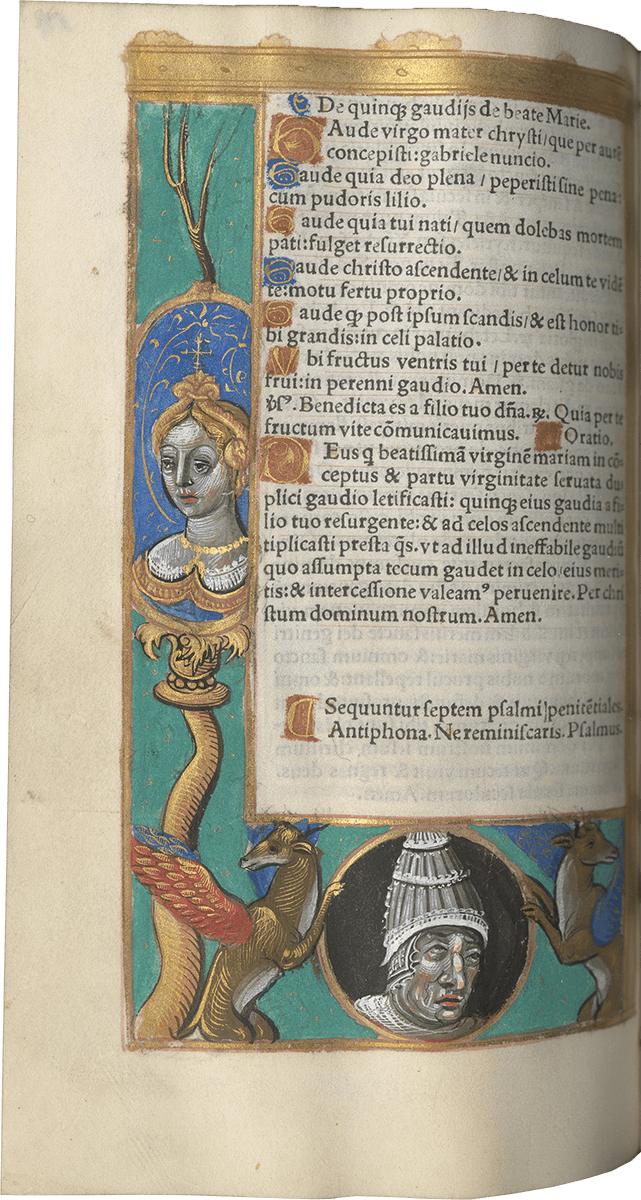 De quinqꝫ gaudijs de beate Marie.
GAude virgo mater chrysti/que per aurē
concepisti:gabriele nuncio.
Gaude quia deo plena / peperisti sine pena:
cum pudoris lilio.
Gaude quia tui nati/ quem dolebas mortem
pati:fulget resurrectio.
Gaude christo ascendente/& in celum te vidē
te:motu fertu proprio.
Gaude qꝫ post ipsum scandis/& est honor ti-
bi grandis:in celi palatio.
Vbi fructus ventris tui / per te detur nobis
frui:in perenni gaudio. Amen.
℣sꝰ. Benedicta es a filio tuo dña. ℞. Quia per te
fructum vite cōmunicauimus. Oratio.
DEus q beatissimā virginēmariam in cō-
ceptus & partu virginitate seruata du
plici gaudio letificasti: quinqꝫ eius gaudia a fi-
lio tuo resurgente:& ad celos ascendente mul
tiplicasti presta q̄s. vt ad illud ineffabile gaudiū
quo assumpta tecum gaudet in celo/eius meri-
tis:& intercessione valeamꝰ peruenire. Per chri
stum dominum nostrum. Amen.
Sequuntur septem psalmi penitētiales.
Antiphona. Ne reminiscaris. Psalmus.